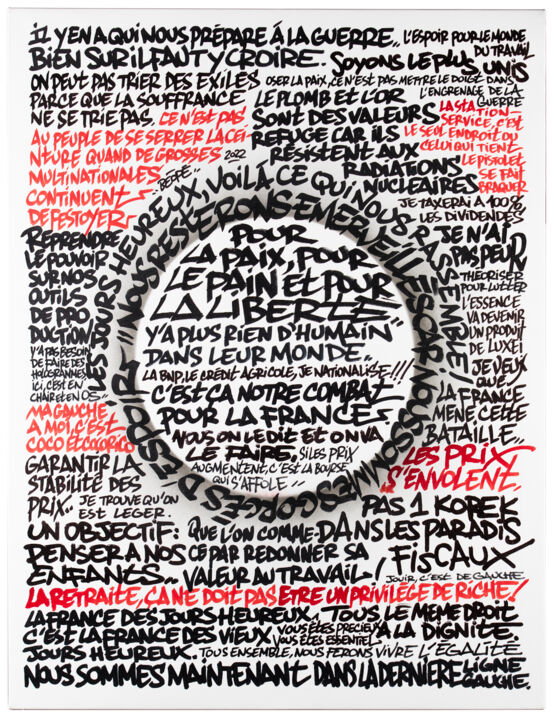 IL Y EN A QUI NOUS PRÉPARE À LA GUERRE..
BIEN SUR IL FAUT Y CROIRE.
L'ESPOIR POUR LE MONDE
DU TRAVAIL
SOYONS LE PLUS UNIS
ON PEUT PAS TRIER DES EXILES
PARCE QUE LA SOUFFRANCE
NE SE TRIE PAS.
OSER LA PAIX, CE N'EST PAS METTRE LE DOIGT DANS
L'ENGRENAGE DE LA
GUERRE
LE PLOMB ET L'OR
SONT DES VALEURS
REFUGE CAR ILS
RÉSISTENT AUX
RADIATIONS
NUCLEAIRES
CE N'EST PAS
AU PEUPLE DE SE SERRER LA CEI-
NTURE QUAND DE GROSSES
MULTINATIONALES
CONTINUENT
DE FESTOYER
2022
LA STA
TION-
SERVICE, C'EST
LE SEUL ENDROIT OU
CELUI QUI TIENT
LE PISTOLET
SE FAIT
BRAQUER
JE TAXERAI A 100%
LES DIVIDENDES
REPRENDRE
LE POUVOIR
SUR NOS
OUTILS
DE PRO
DUCTION
JE N'AI
PAS PEUR
THEORISER
POUR LUTTER
L'ESSENCE
VA DEVENIR
UN PRODUIT
DE LUXE!
Y'A PAS BESOIN
DE FAIRE DES
HOLOGRAMMES
ICI, C'EST EN
CHAIR ET EN OS"
MA GAUCHE
A MOI, C'EST
COCO ET COCORICO
JE VEUX
QUE
LA FRANCE
MENE CETTE
BATAILLE..
LES JOURS HEUREUX, VOILA CE QUI NOUS RASSEMBLE!
NOUS RESTERONS EMERVEILLES CAR NOUS SOMMES GORGES D'ESPOIR
POUR
LA PAIX, POUR
LE PAIN ET POUR
LA LIBERTE
Y'A PLUS RIEN D'HUMAIN
DANS LEUR MONDE..
LA BNP, LE CREDIT AGRICOLE, JE NATIONALISE!!!
C'EST ÇA NOTRE COMBAT
POUR LA FRANCE
NOUS ON LE DIT ET ON VA
LE FAIRE.
SI LES PRIX
AUGMENTENT, C'EST LA BOURSE
QUI S'AFFOLE
LES PRIX
S'ENVOLENT.
GARANTIR LA
STABILITE DES
PRIX..
JE TROUVE QU'ON
EST LEGER.
PAS 1 KOPEK
DANS LES PARADIS
FISCAUX
UN OBJECTIF:
PENSER A NOS
ENFANTS..
QUE L'ON COMME-
CE PAR REDONNER SA
VALEUR AU TRAVAIL!
JOUIR, C'EST DE GAUCHE
LA RETRAITE, CA NE DOIT PAS ETRE UN PRIVILÈGE DE RICHE!
LA FRANCE DES JOURS HEUREUX,
C'EST LA FRANCE DES VIEUX
JOURS HEUREUX.
TOUS LE MEME DROIT
A LA DIGNITE.
VOUS ÊTES PRECIEUX
VOUS ÊTES ESSENTIEL
TOUS ENSEMBLE, NOUS FERONS VIVRE L'ÉGALITÉ
NOUS SOMMES MAINTENANT DANS LA DERNIERE LIGNE
GAUCHE.